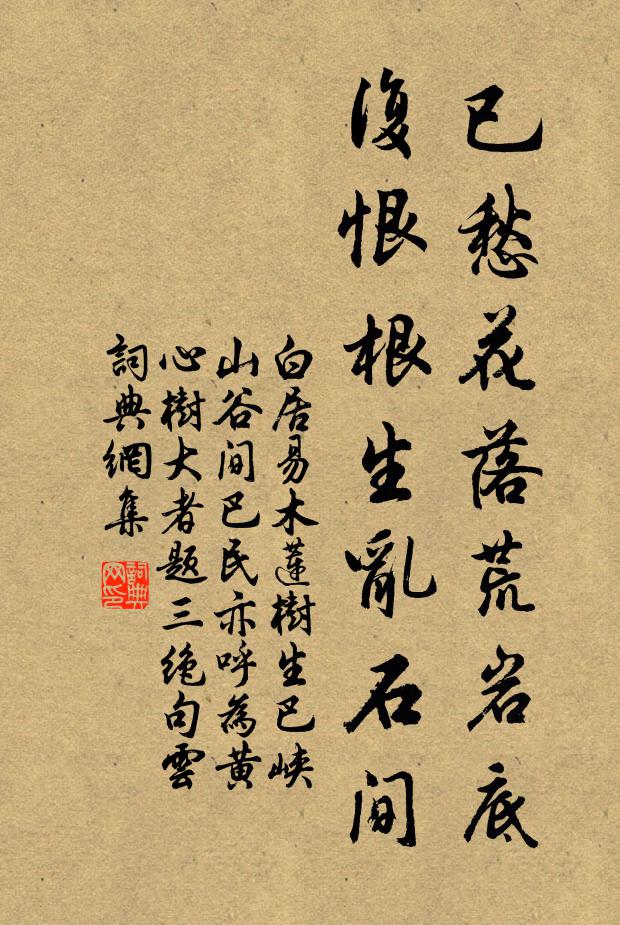 已愁花落荒岩底
復恨根生亂石間
白居易木蓮樹生巴峽
山谷間巴民亦呼為黃
心樹大者題三絕句雲
詞典網集
詞典網印